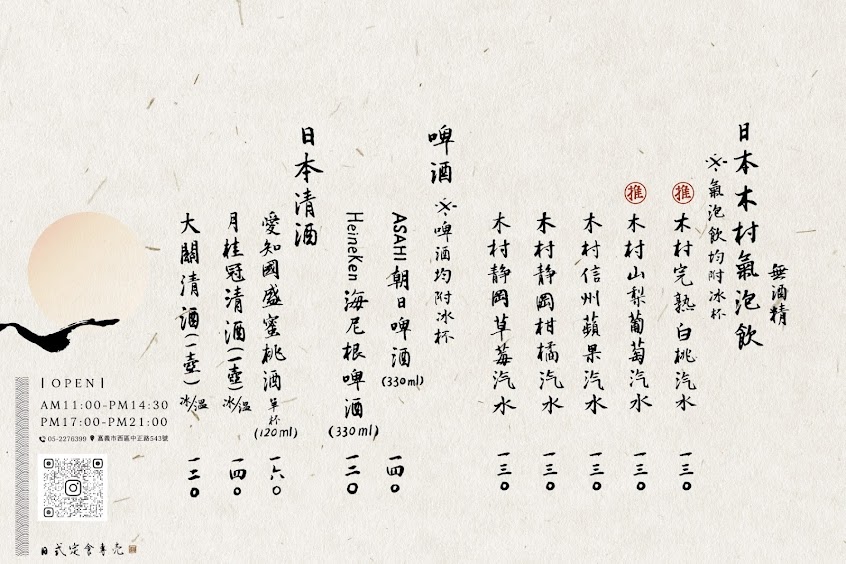 日本木村氣泡飲
無酒精
※氣泡飲均附冰杯
推
木村完熟白桃汽水
一三0
推
木村山梨葡萄汽水
一三0
木村信州蘋果汽水
一三0
木村靜岡柑橘汽水
一三0
木村靜岡草莓汽水
一三0
啤酒
※啤酒均附冰杯
ASAHI 朝日啤酒
(330ml)
一四0
HeineKen 海尼根啤酒
(330ml)
一二0
日本清酒
愛知國盛蜜桃酒
單杯
(120ml)
一六0
月桂冠清酒(一壺)
冰/溫
一四0
大關清酒(一壺)
冰/溫
一二0
OPEN
AM11:00-PM14:30
PM17:00-PM21:00
05-2276399 嘉義市西區中正路543號
日式定食專売